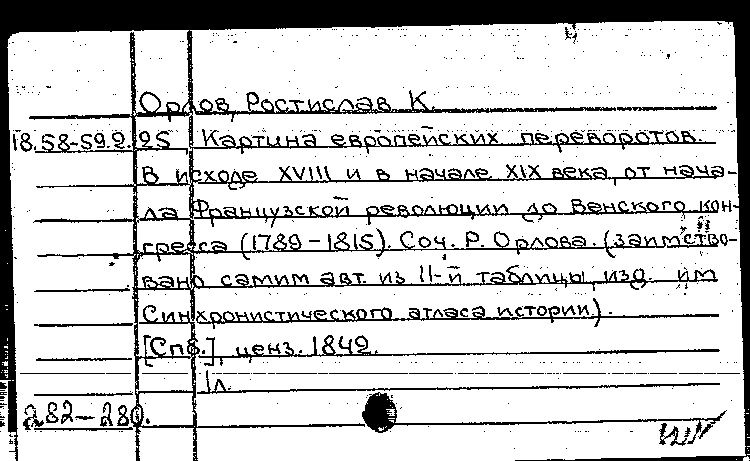 Орлов, Ростислав К.
18.58-59.2.25 Картина европейских переворотов.
В исходе XVIII и в начале XIX века, от нача-
ла Французской революции до Венского кон-
гресса (1789-1815). Соч. Р. Орлова. (Заимство-
вано самим авт. из 11-й таблицы, изд. им
Синхронистического атласа истории).
[Спб.], ценз. 1849.
1л.
282-280.